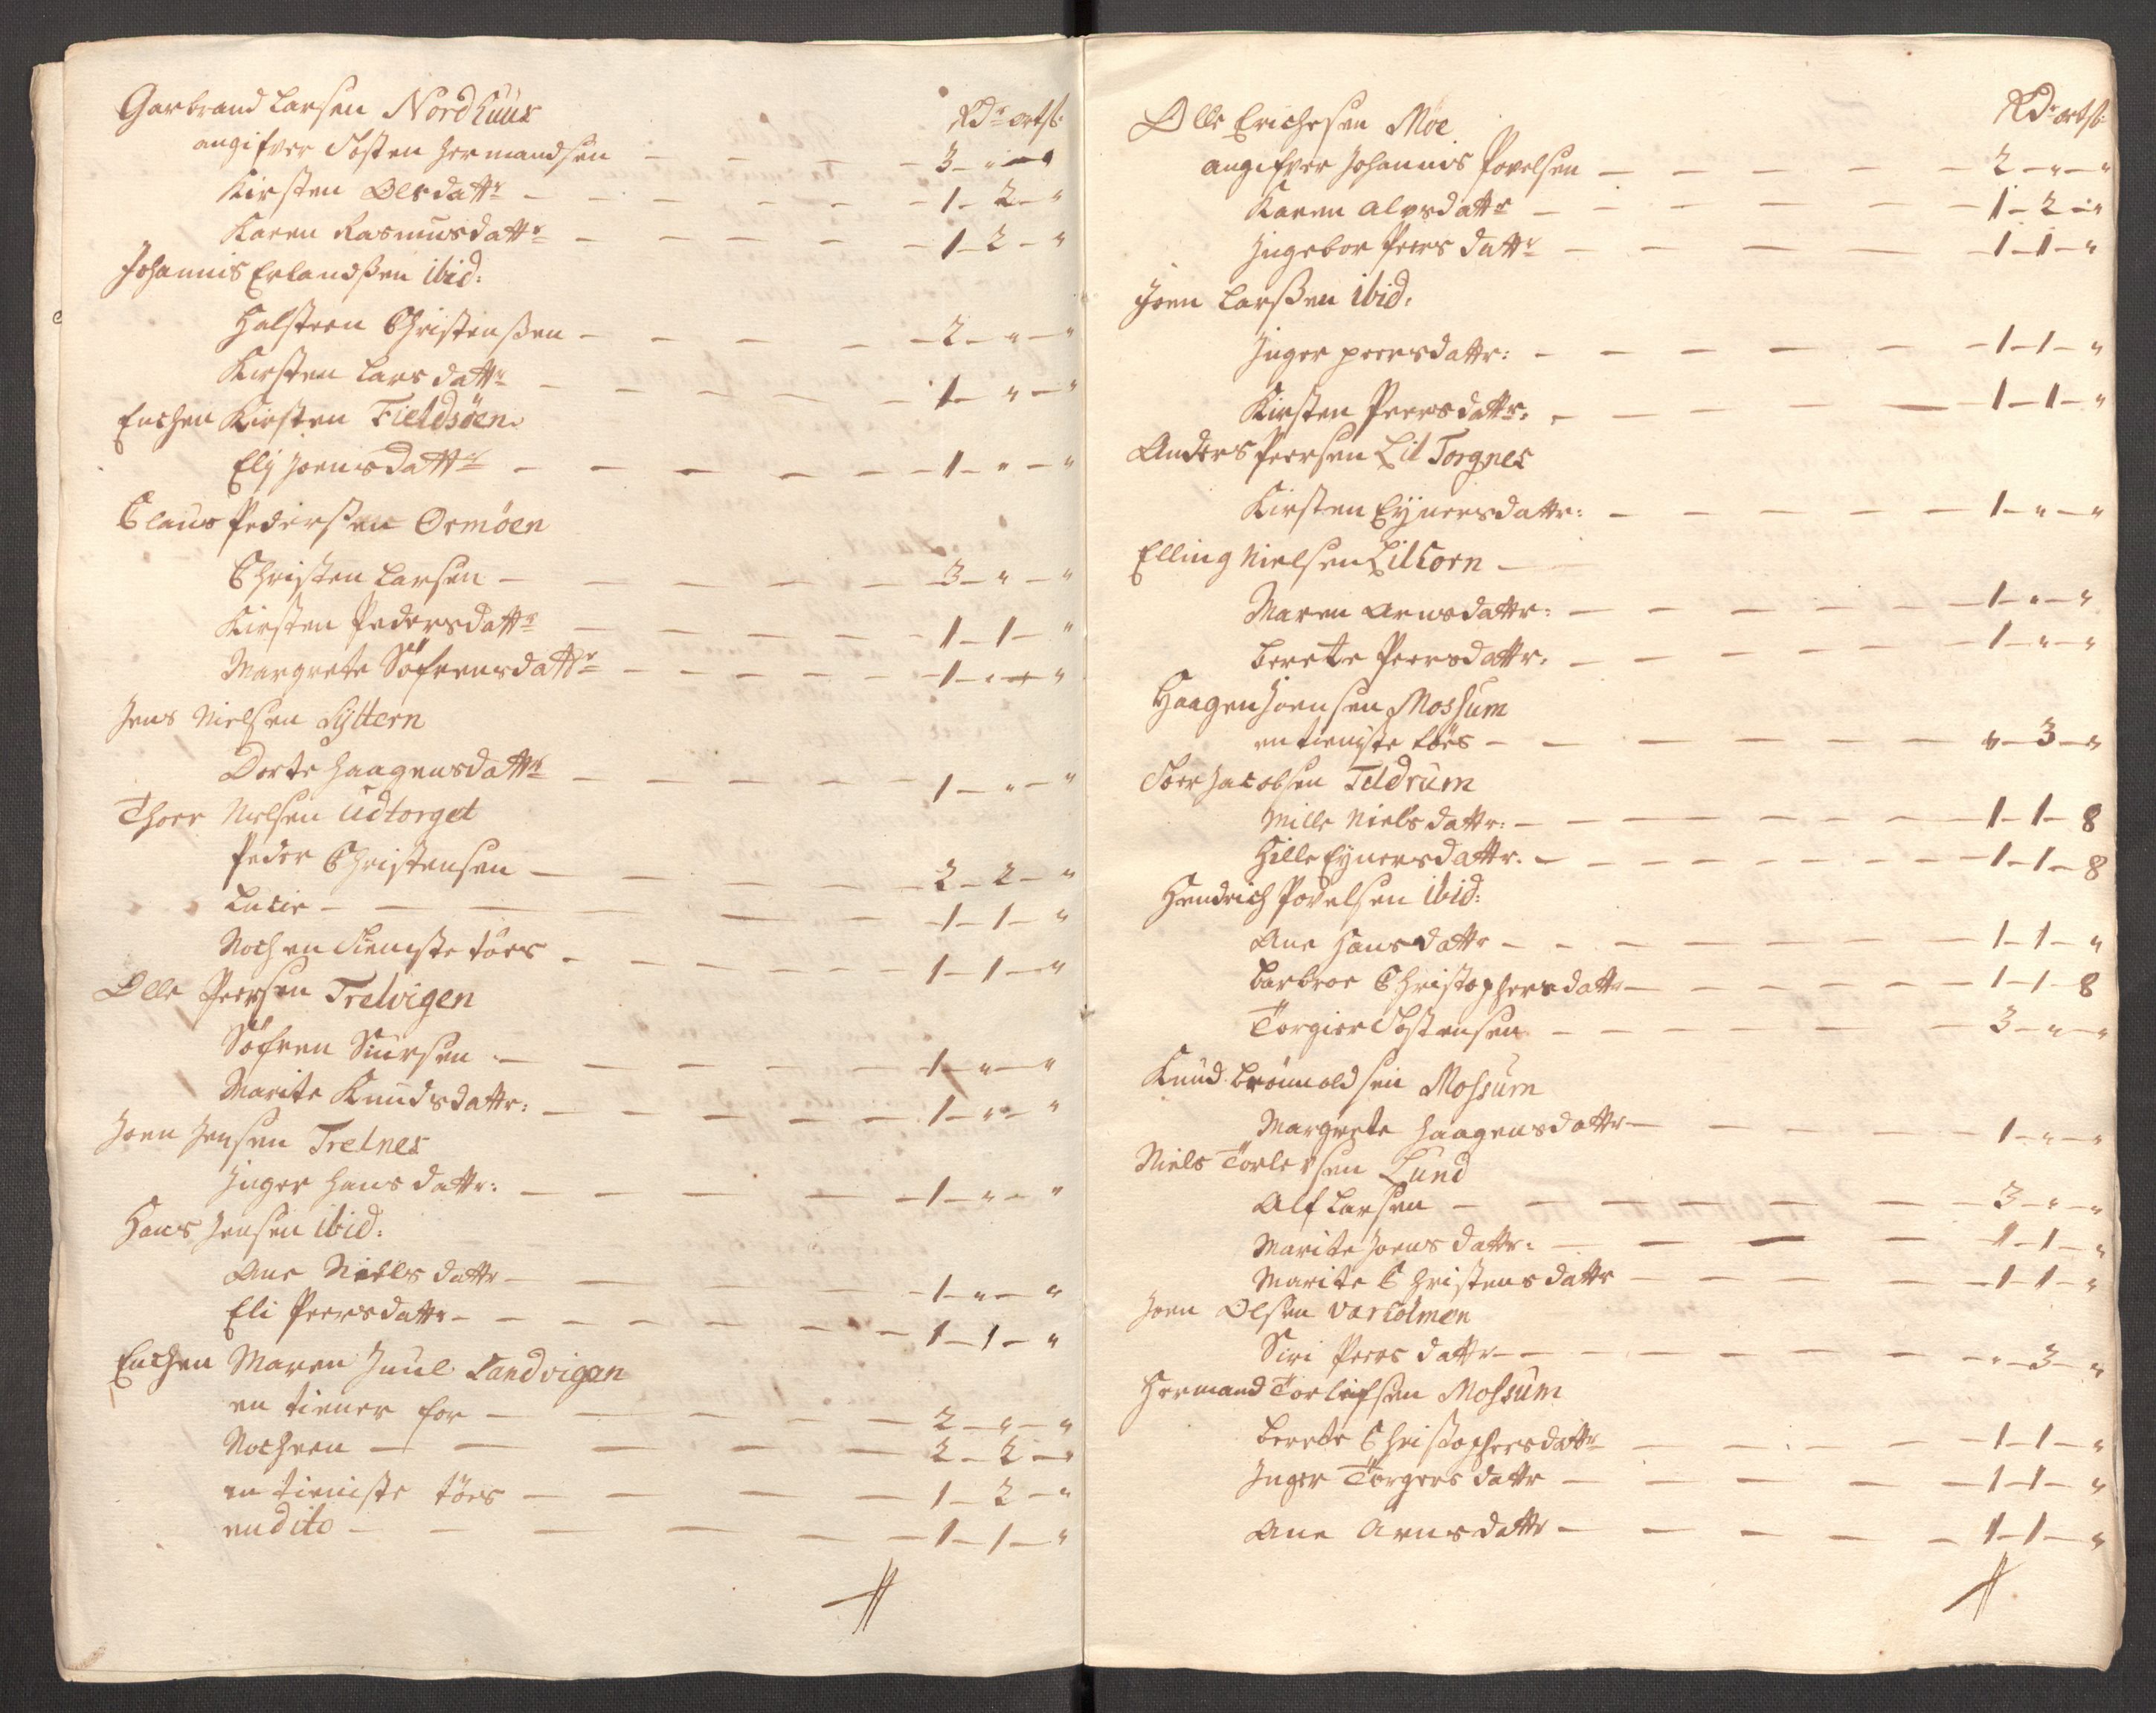 Garbrand Larsen Nordhuus
Rdr ort ß:
angifver Tosten Hermandsen — 3 - " - "
Kirsten Olsdattr — 1 - 2 - "
Karen Rasmusdattr — 1 - 2 - "
Johannis Erlandßen ibid:
Halsteen Christenßen — 2 - " - "
Kirsten Larsdattr — 1 - " - "
Enchen Kirsten Fieldsöen
Elj Joensdattr — 1 - " - "
Claus Pederßen Ormöen
Christen Larsen — 3 - " - "
Kirsten Pedersdattr — 1 - 1 - "
Margrete Söfrensdattr — 1 - " - "
Jens Nielsen Sÿttern
Dorte Haagensdattr — 1 - " - "
Thoer Nielsen Udtorget
Peder Christensen — 2 - 2 - "
Lucie — 1 - 1 - "
Noch en Tieniste töes — 1 - 1 - "
Olle Peersen Trelvigen
Söfren Siursen — 1 - " - "
Marite Knudsdattr: — 1 - " - "
Joen Jensen Trelnes
Inger Hansdattr: — 1 - " - "
Hans Jensen ibid:
Ane Nielsdattr — 1 - " - "
Eli Peersdattr — 1 - 1 - "
Enchen Maren Juul Sandvigen
en tiener for — 2 - " - "
Noch een — 2 - 2 - "
en tieniste töes — 1 - 2 - "
en dito — 1 - 1 - "
Olle Erichsen Moe
Rdr ort ß:
angifver Johannis Povelsen — 2 - " - "
Karen Alvsdattr — 1 - 2 - "
Ingebor Peersdattr — 1 - 1 - "
Joen Larßen ibid:
Inger peersdattr: — 1 - 1 - "
Kirsten Peersdattr: — 1 - 1 - "
Anders Peersen Lil Torgnes
Kirsten Eÿnersdattr: — 1 - " - "
Elling Nielsen Lilhorn —
Maren Arnsdattr: — 1 - " - "
Berete Peersdattr: — 1 - " - "
Haagen Joensen Mossum
en tieniste töes — " - 3 - "
Toer Jacobsen Tildrum
Mille Nielsdattr: — 1 - 1 - 8
Hille Eÿnersdattr: — 1 - 1 - 8
Hendrich Povelsen ibid:
Ane Hansdattr — 1 - 1 - "
Barbroe Christophersdattr — 1 - 1 - 8
Torgier Tostensen — 3 - " - "
Knud Brönnoldsen Mossum
Margrete Haagensdattr — 1 - " - "
Niels Torlevsen Lund
Alf Larsen — 3 - " - "
Marite Joensdattr: — 1 - 1 - "
Marite Christensdattr — 1 - 1 - "
Joen Olsen Varholmen
Siri Peersdattr — " - 3 - "
Hermand Torlefsen Mossum
Berete Christophersdattr — 1 - 1 - "
Inger Torgersdattr — 1 - 1 - "
Ane Arnsdattr — 1 - 1 - "